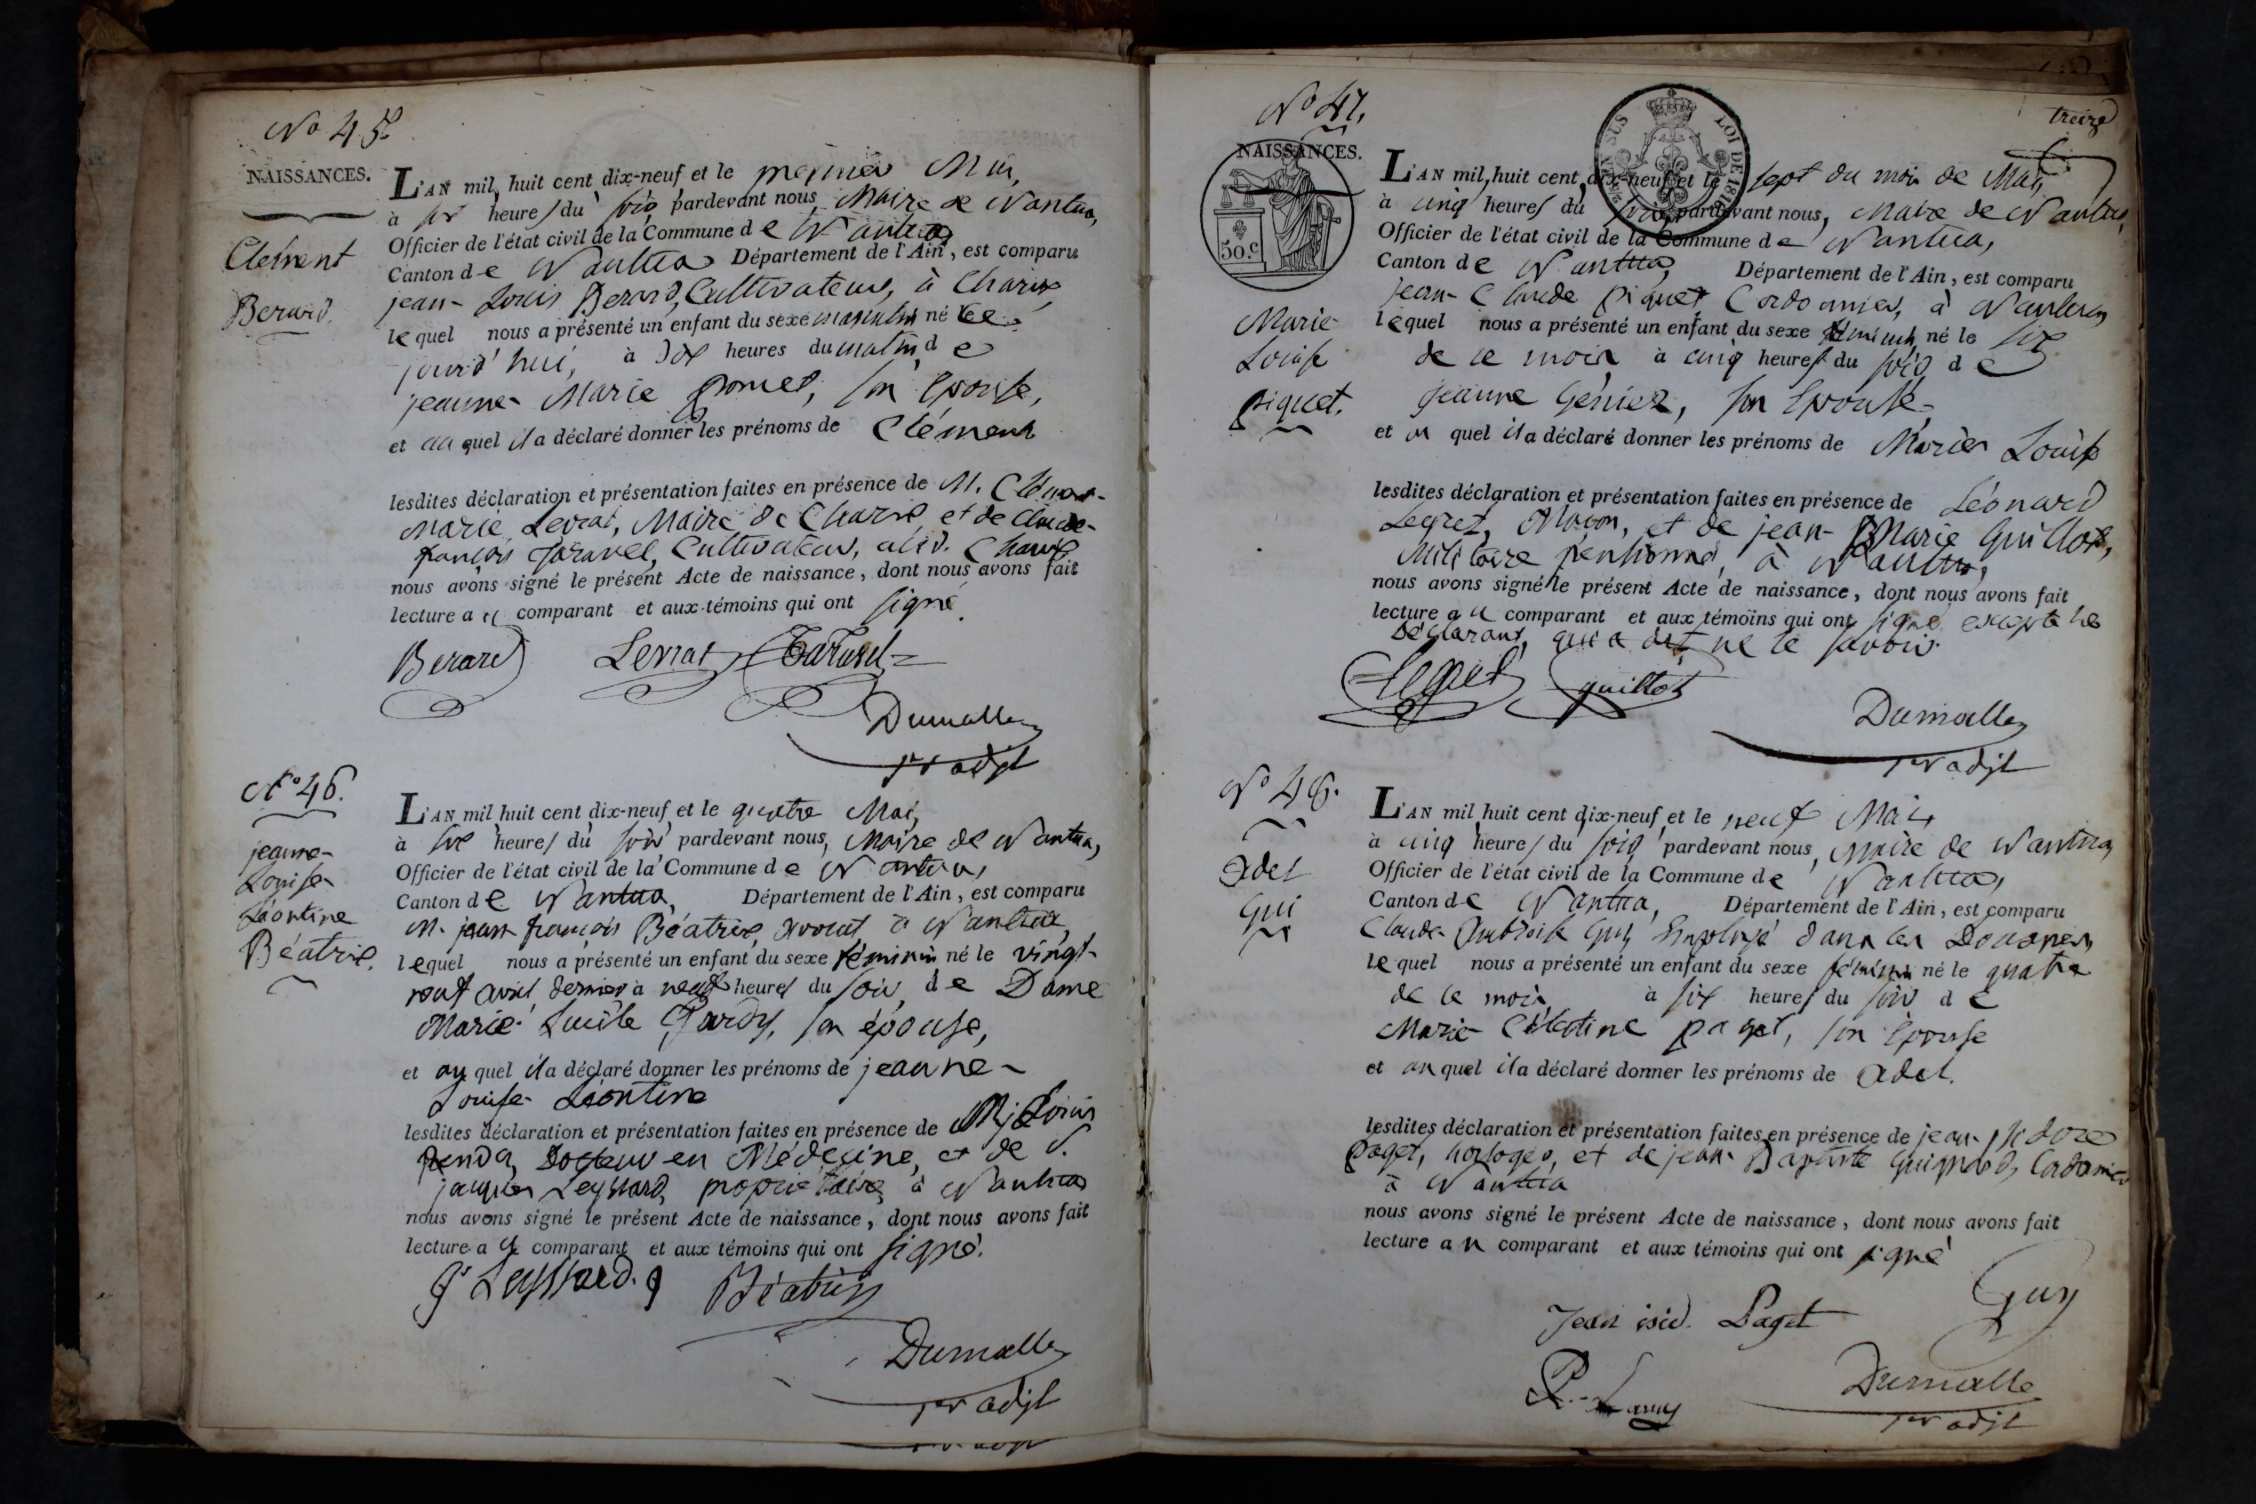 No 45.
NAISSANCES.
Clément
Berard.
L'AN mil huit cent dix-neuf et le premier Mai,
à six heures du soir pardevant nous, Maire de Nantua,
Officier de l'état civil de la Commune de Nantua
Canton de Nantua Département de l'Ain, est comparu
jean-Louis Berard, Cultivateur, à Charix,
lequel nous a présenté un enfant du sexe masculin né ce
jourd'hui, à dix heures du matin, de
jeanne-Marie son épouse,
et auquel il a déclaré donner les prénoms de Clément
lesdites déclaration et présentation faites en présence de M. Clément-
Marie Levrat, Maire de Charix, et de Claude-
françois Cultivateur, Charix
nous avons signé le présent Acte de naissance, dont nous avons fait
lecture au comparant et aux témoins qui ont signé.
Berard Levrat
Dumalle
1er adjt
No 46.
jeanne-
Louise-
Léontine
Béatrix.
L'AN mil huit cent dix-neuf et le quatre Mai,
à six heures du soir pardevant nous, Maire de Nantua,
Officier de l'état civil de la Commune de Nantua,
Canton de Nantua, Département de l'Ain, est comparu
M. jean françois Béatrix, avocat à Nantua,
lequel nous a présenté un enfant du sexe féminin né le vingt-
neuf avril dernier à neuf heures du soir, de Dame
Marie Lucile son épouse,
et auquel il a déclaré donner les prénoms de jeanne-
Louise-Léontine
lesdites déclaration et présentation faites en présence de M. j. Louis
Docteur en Médecine, et de S.
jacques Leyssard, propriétaire, à Nantua
nous avons signé le présent Acte de naissance, dont nous avons fait
lecture au comparant et aux témoins qui ont signé.
Js Leyssard. Béatrix
Dumalle
1er adjt
treize
No 47.
NAISSANCES.
50.c
TIMBRE EN SUS LOI DE 1816
Marie-
Louise
piquet.
L'AN mil huit cent dix-neuf et le sept du mois de Mai,
à cinq heures du soir, pardevant nous, Maire de Nantua,
Officier de l'état civil de la Commune de Nantua,
Canton de Nantua, Département de l'Ain, est comparu
jean-Claude piquet Cordonnier, à Nantua,
lequel nous a présenté un enfant du sexe féminin, né le six
de ce mois à cinq heures du soir, de
jeanne Géniez, son épouse
et au quel il a déclaré donner les prénoms de Marie Louise
lesdites déclaration et présentation faites en présence de Léonard
Legret, Maçon, et de jean-Marie Guillot,
Militaire pensionné, à Nantua,
nous avons signé le présent Acte de naissance, dont nous avons fait
lecture au comparant et aux témoins qui ont signé excepté le
Déclarant, qui a dit ne le savoir.
Legret guillot
Dumalle
1er adjt
No 48.
Adel
Gui
L'AN mil huit cent dix-neuf et le neuf Mai,
à cinq heures du soir pardevant nous, Maire de Nantua,
Officier de l'état civil de la Commune de Nantua,
Canton de Nantua, Département de l'Ain, est comparu
Claude Ambroise Guy, Employé dans les Douanes,
lequel nous a présenté un enfant du sexe féminin né le quatre
de ce mois à six heures du soir de
Marie Célestine paget, son épouse
et au quel il a déclaré donner les prénoms de Adel.
lesdites déclaration et présentation faites en présence de jean isidore
paget, horloger, et de jean-Baptiste Cordonnier
à Nantua
nous avons signé le présent Acte de naissance, dont nous avons fait
lecture au comparant et aux témoins qui ont signé
Jean isid. Paget Guy
Dumalle
1er adjt